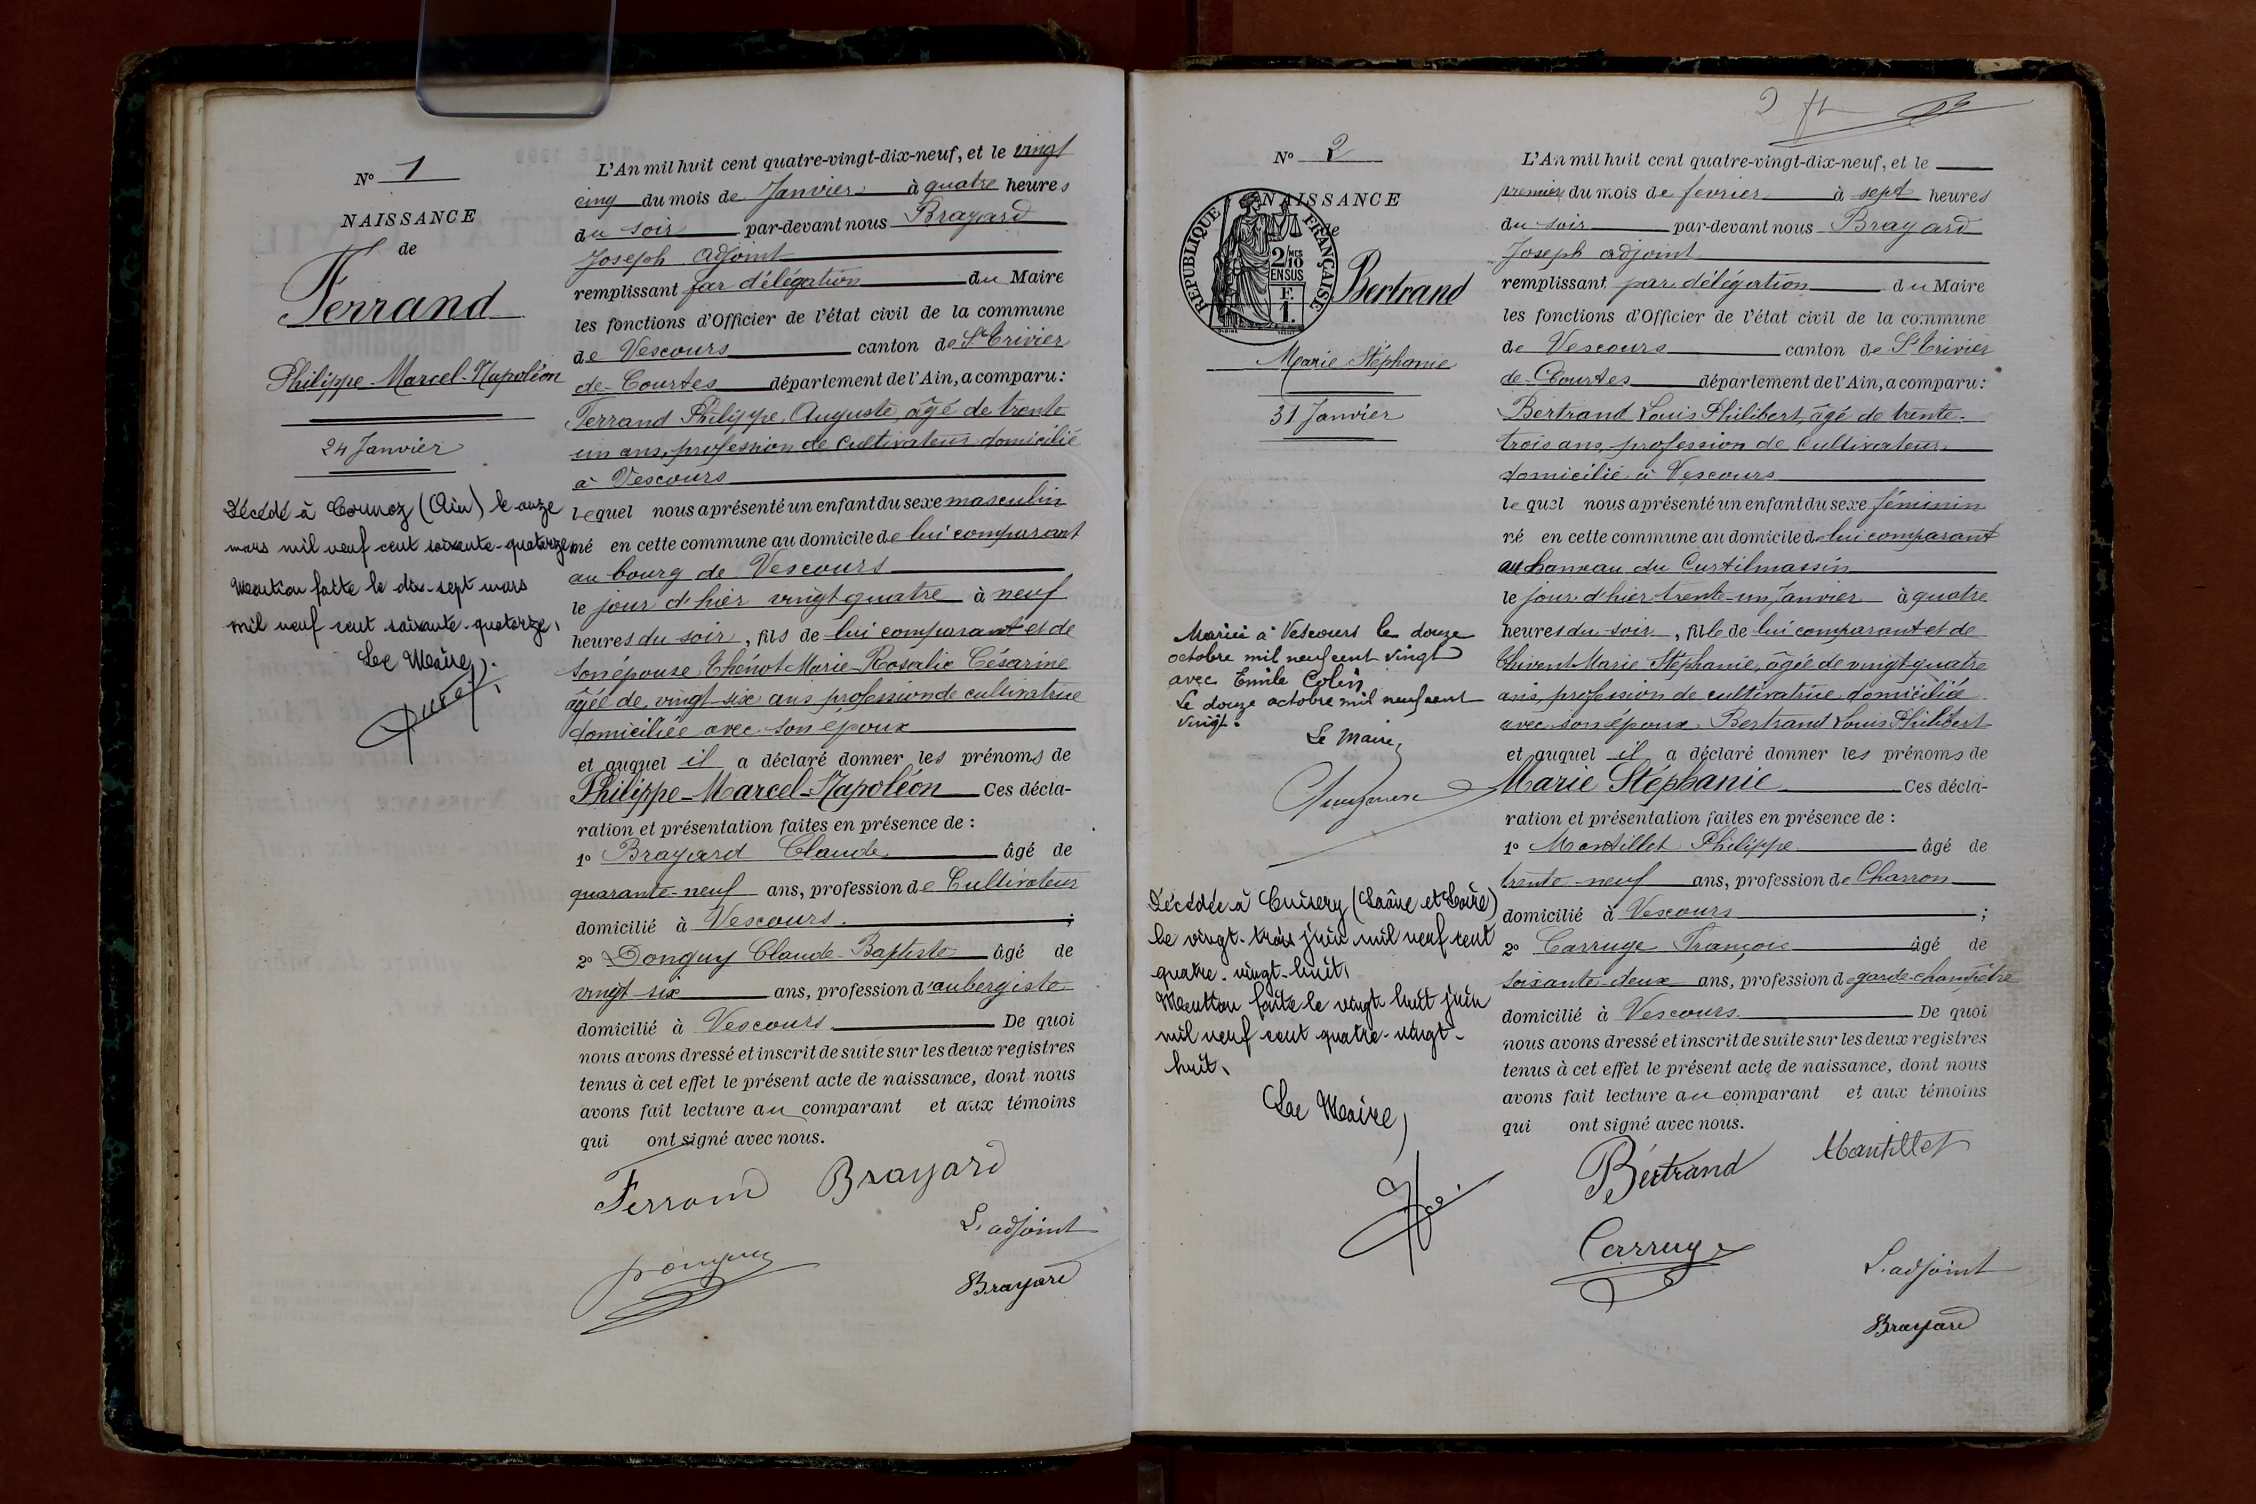 N° 1
NAISSANCE
de
Ferrand
Philippe-Marcel-Napoléon
24 Janvier
Décédé à Cormoz (Ain) le onze
mars mil neuf cent soixante-quatorze
Mention faite le dix-sept mars
mil neuf cent soixante-quatorze.
Le Maire,
L'An mil huit cent quatre-vingt-dix-neuf, et le vingt
cinq du mois de Janvier à quatre heures
du soir par-devant nous Brayard
Joseph adjoint
remplissant par délégation du Maire
les fonctions d'Officier de l'état civil de la commune
de Vescours canton de St Trivier
de-Courtes département de l'Ain, a comparu:
Ferrand Philippe Auguste âgé de trente
un ans, profession de cultivateur domicilié
à Vescours
lequel nous a présenté un enfant du sexe masculin
né en cette commune au domicile de lui comparant
au bourg de Vescours
le jour d'hier vingt quatre à neuf
heures du soir, fils de lui comparant et de
son épouse Thénot Marie-Rosalie Césarine
âgée de vingt-six ans profession de cultivatrice
domiciliée avec son époux
et auquel il a déclaré donner les prénoms de
Philippe-Marcel-Napoléon Ces décla-
ration et présentation faites en présence de :
1° Brayard Claude âgé de
quarante-neuf ans, profession de Cultivateur
domicilié à Vescours ;
2° Donguy Claude-Baptiste âgé de
vingt six ans, profession d'aubergiste
domicilié à Vescours De quoi
nous avons dressé et inscrit de suite sur les deux registres
tenus à cet effet le présent acte de naissance, dont nous
avons fait lecture au comparant et aux témoins
qui ont signé avec nous.
Ferrand Brayard
L'adjoint
Donguy
Brayard
2
N° 2
NAISSANCE
de
RÉPUBLIQUE FRANÇAISE
2/10 EN SUS
F.
1.
Bertrand
Marie Stéphanie
31 Janvier
Mariée à Vescours le douze
octobre mil neuf cent vingt
avec Emile Colin
Le douze octobre mil neuf cent
vingt.
Le Maire
Décédée à Cuisery (Saône et Loire)
le vingt-trois juin mil neuf cent
quatre-vingt-huit.
Mention faite le vingt huit juin
mil neuf cent quatre-vingt-
huit.
Le Maire,
L'An mil huit cent quatre-vingt-dix-neuf, et le
premier du mois de fevrier à sept heures
du soir par-devant nous Brayard
Joseph adjoint
remplissant par délégation du Maire
les fonctions d'Officier de l'état civil de la commune
de Vescours canton de St Trivier
de-Courtes département de l'Ain, a comparu:
Bertrand Louis Philibert, âgé de trente-
trois ans, profession de Cultivateur
domicilié à Vescours
lequel nous a présenté un enfant du sexe féminin
né en cette commune au domicile de lui comparant
au hameau du Curtilmassin
le jour d'hier trente-un Janvier à quatre
heures du soir, fille de lui comparant et de
Thivent Marie Stéphanie, âgée de vingt-quatre
ans, profession de cultivatrice domiciliée
avec son époux Bertrand Louis Philibert
et auquel il a déclaré donner les prénoms de
Marie Stéphanie Ces décla-
ration et présentation faites en présence de :
1° Mantillet Philippe âgé de
trente-neuf ans, profession de Charron
domicilié à Vescours ;
2° Carruge François âgé de
soixante-deux ans, profession de garde-champêtre
domicilié à Vescours De quoi
nous avons dressé et inscrit de suite sur les deux registres
tenus à cet effet le présent acte de naissance, dont nous
avons fait lecture au comparant et aux témoins
qui ont signé avec nous.
Bertrand Mantillet
Carruge
L'adjoint
Brayard